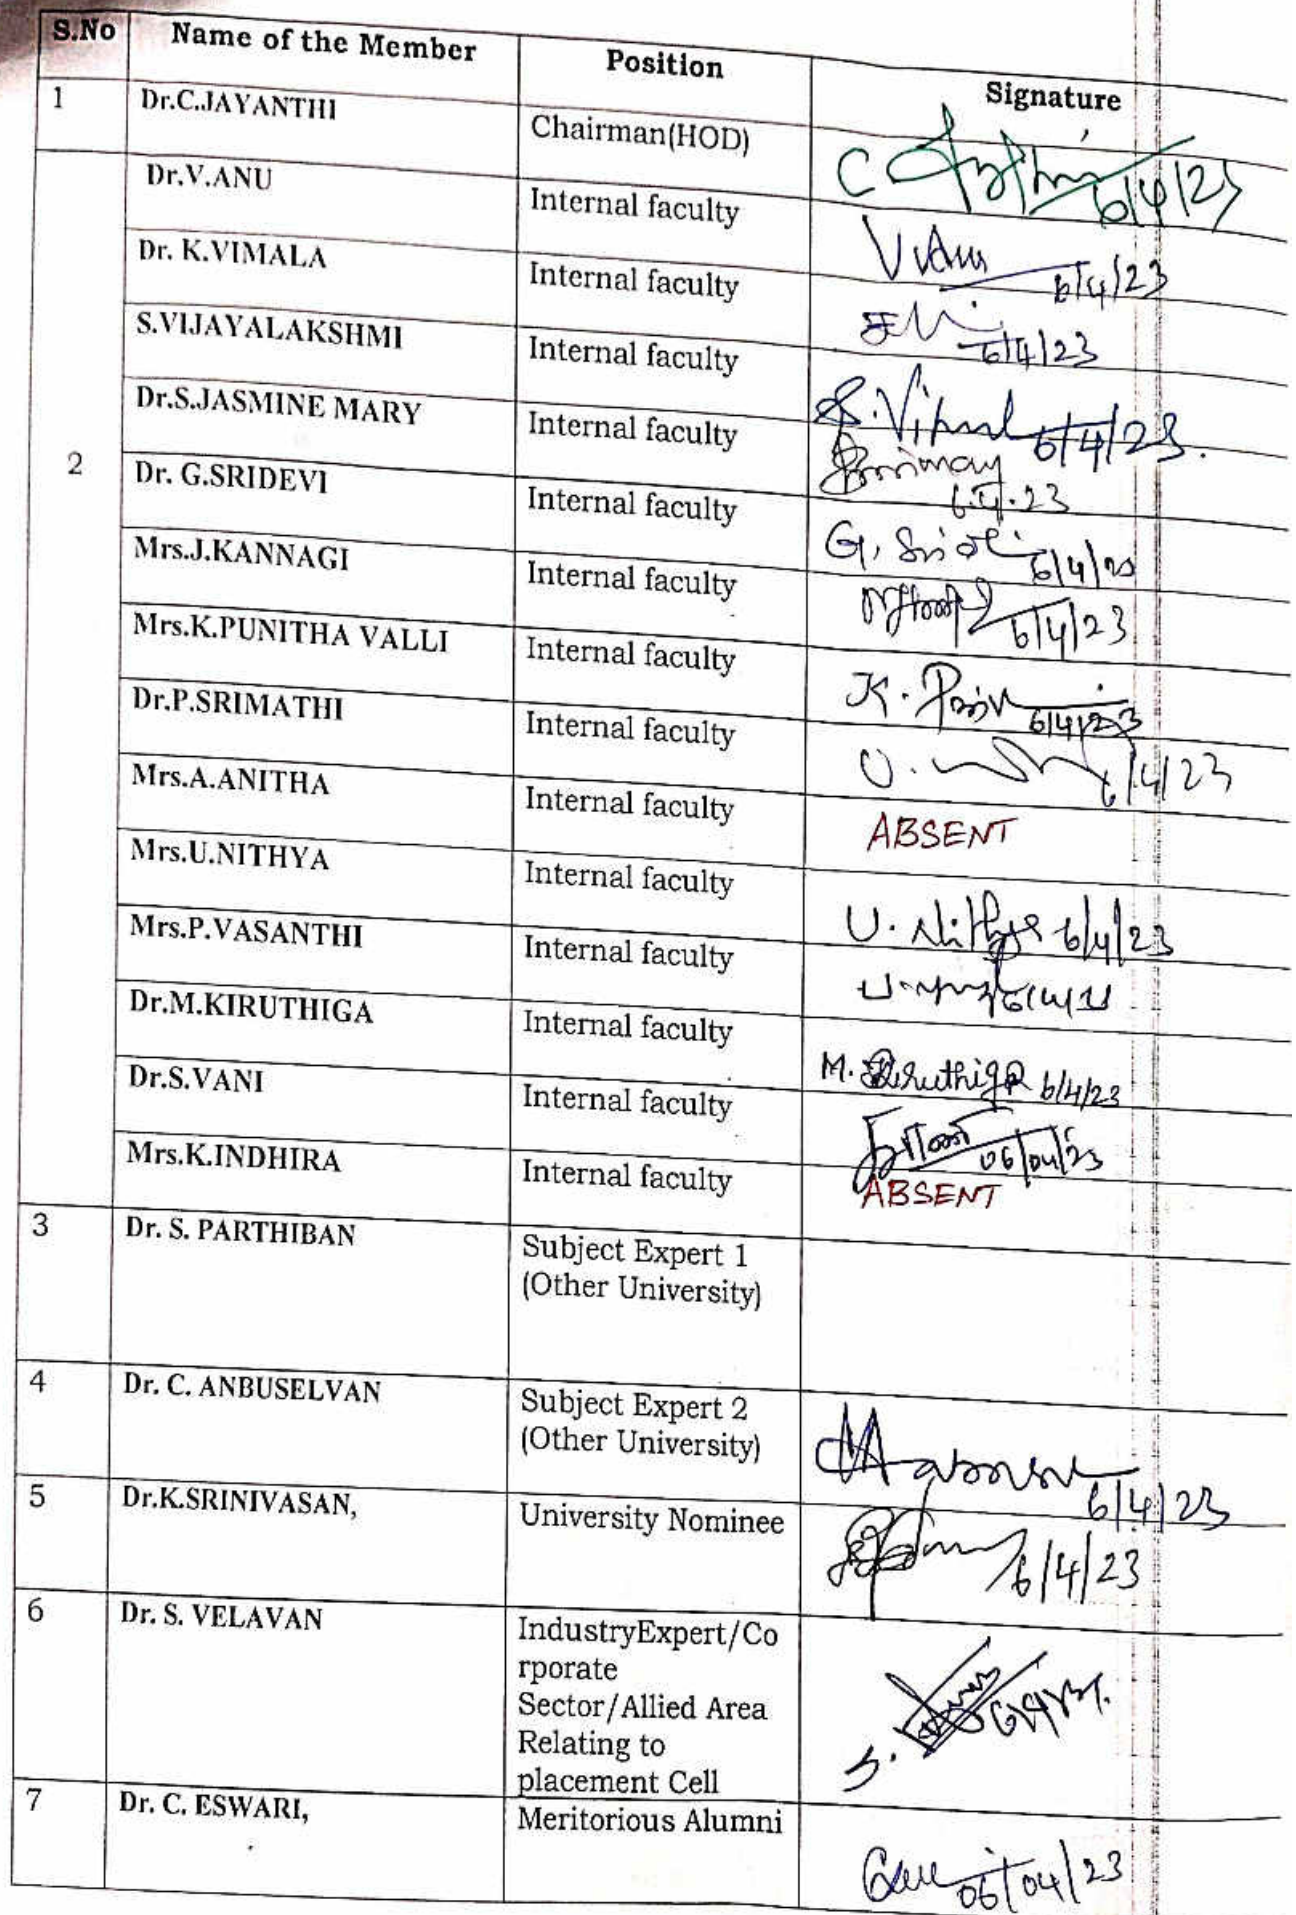 S.No Name of the Member Position Signature
1 Dr.C.JAYANTHI Chairman(HOD) C 6/4/23
2
Dr.V.ANU Internal faculty V.Anu 6/4/23
Dr. K.VIMALA Internal faculty 6/4/23
S.VIJAYALAKSHMI Internal faculty S. 6/4/23.
Dr.S.JASMINE MARY Internal faculty 6.4.23
Dr. G.SRIDEVI Internal faculty G. 6/4/23
Mrs.J.KANNAGI Internal faculty 6/4/23
Mrs.K.PUNITHA VALLI Internal faculty K. 6/4/23
Dr.P.SRIMATHI Internal faculty 6/4/23
Mrs.A.ANITHA Internal faculty ABSENT
Mrs.U.NITHYA Internal faculty U. Nithya 6/4/23
Mrs.P.VASANTHI Internal faculty
Dr.M.KIRUTHIGA Internal faculty M. Kiruthiga 6/4/23
Dr.S.VANI Internal faculty 06/04/23
Mrs.K.INDHIRA Internal faculty ABSENT
3 Dr. S. PARTHIBAN Subject Expert 1
(Other University)
4 Dr. C. ANBUSELVAN Subject Expert 2
(Other University) 6/4/23
5 Dr.K.SRINIVASAN, University Nominee 6/4/23
6 Dr. S. VELAVAN IndustryExpert/Co
rporate
Sector/Allied Area
Relating to
placement Cell S.
7 Dr. C. ESWARI, Meritorious Alumni
06/04/23